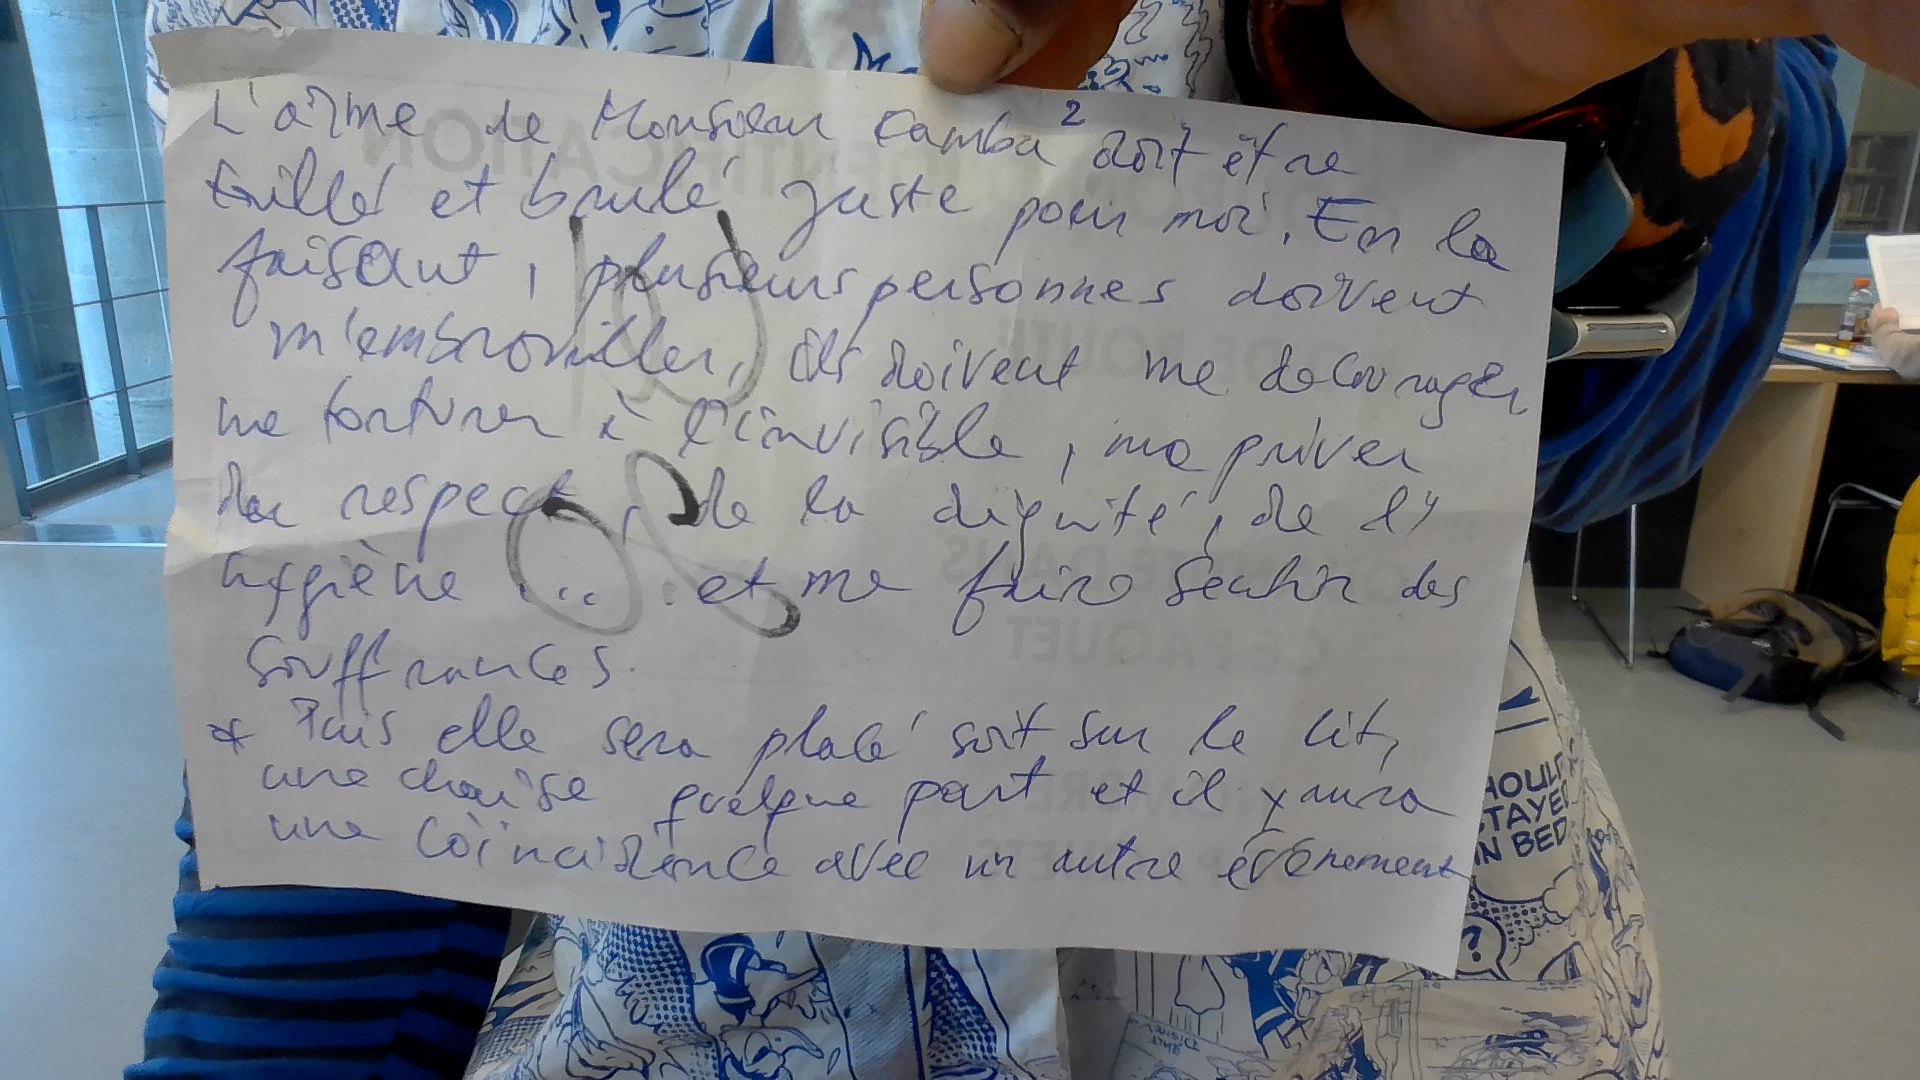 L'arme de Monsieur Camba 2 doit être
taillé et brulé juste pour moi. En la
faisant, plusieurs personnes doivent
m'embrouiller, ils doivent me decourager,
me torturer à l'invisible, me priver
du respect, de la dignité, de l'
hygiène ... et me faire sentir des
souffrances.
* Puis elle sera placé soit sur le lit,
une chaise quelque part et il y aura
une coïncidence avec un autre évènement
HOULD
STAYED
IN BED
?
IDENTIFICATION
DE ROUTE
DANS
CE PAQUET